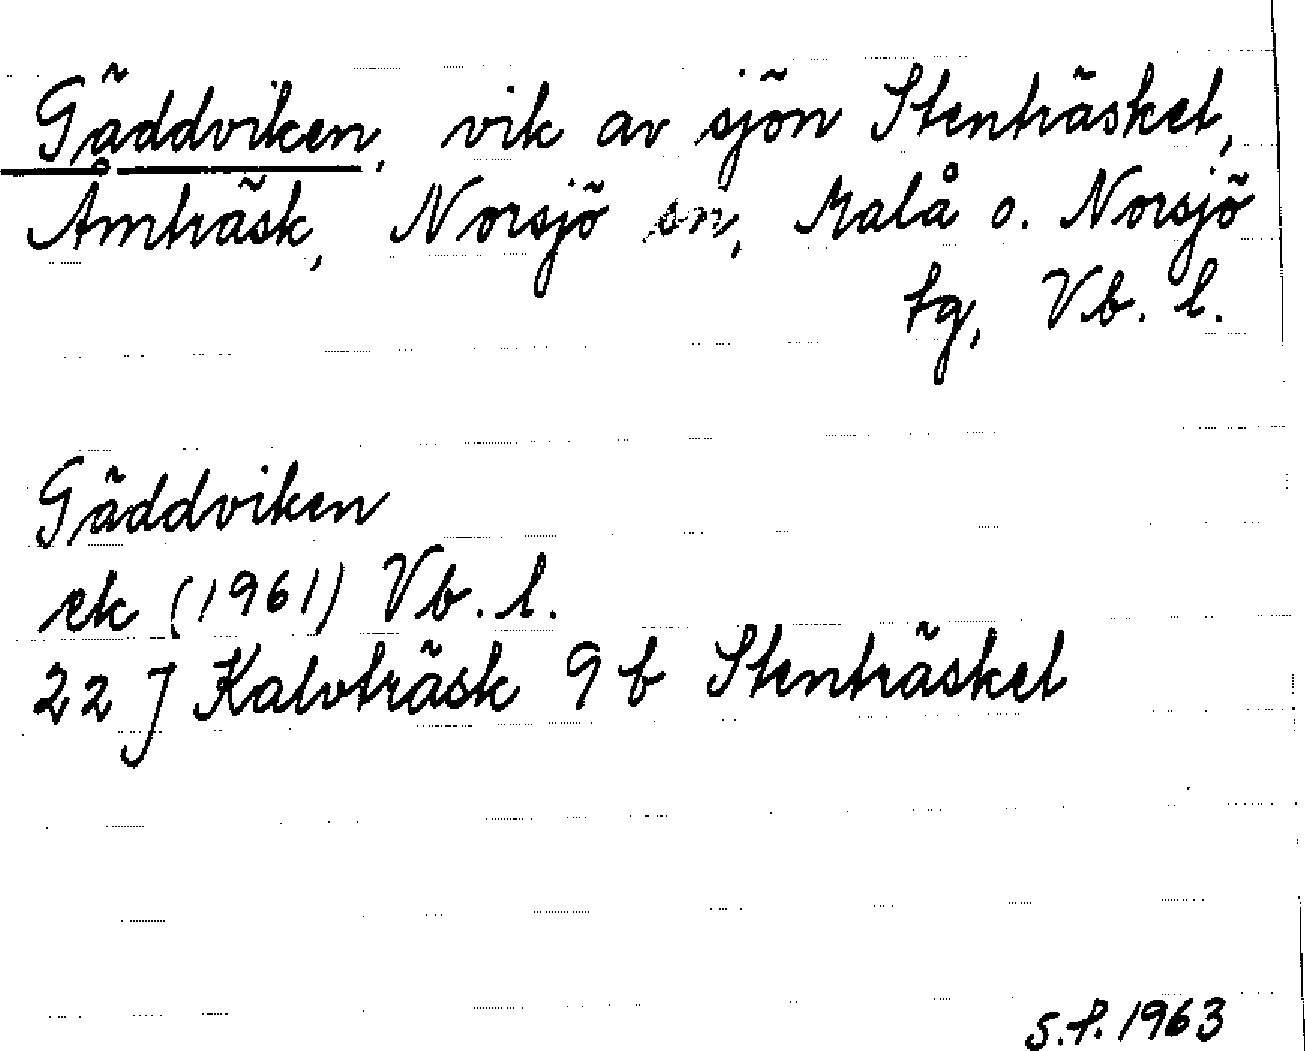 Gäddviken, vik av sjön Stenträsket,
Åmträsk, Norsjö sn, Malå o. Norsjö
tg, Vb. l.
Gäddviken
ek (1961) Vb. l.
22 J Kalvträsk 9 b Stenträsket
S.F. 1963